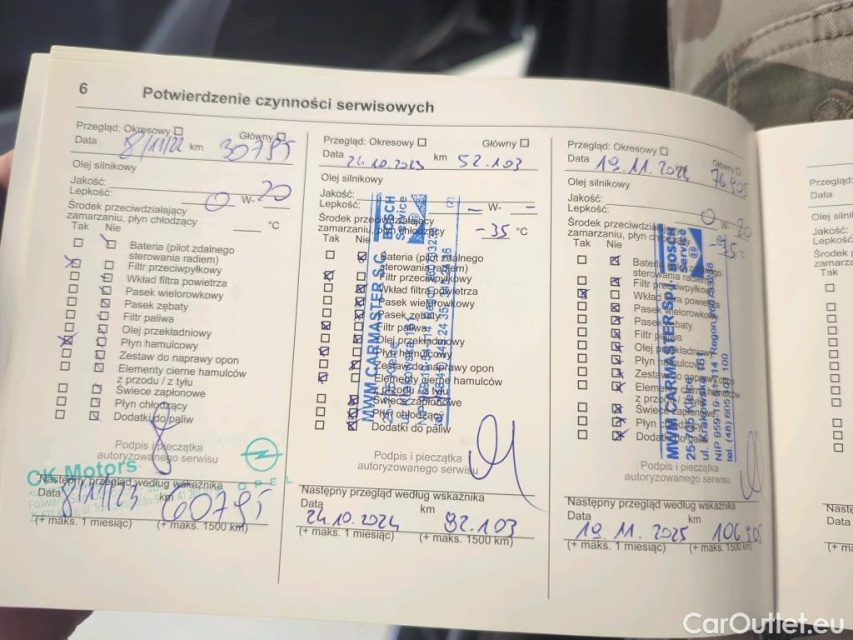 6 Potwierdzenie czynności serwisowych
Przegląd: Okresowy Główny
Data 8/11/22 km 30795
Olej silnikowy
Jakość:
Lepkość: 0 W- 20
Środek przeciwdziałający
zamarzaniu, płyn chłodzący °C
Tak Nie
Bateria (pilot zdalnego
sterowania radiem)
Filtr przeciwpyłkowy
Wkład filtra powietrza
Pasek wielorowkowy
Pasek zębaty
Filtr paliwa
Olej przekładniowy
Płyn hamulcowy
Zestaw do naprawy opon
Elementy cierne hamulców
z przodu / z tyłu
Świece zapłonowe
Płyn chłodzący
Dodatki do paliw
Podpis i pieczątka
autoryzowanego serwisu
CK Motors
OPEL
Następny przegląd według wskaźnika
Data 8/11/23 km 60795
(+ maks. 1 miesiąc) (+ maks. 1500 km)
Przegląd: Okresowy Główny
Data 24.10.2023 km 52.103
Olej silnikowy
Jakość:
Lepkość: – W- –
Środek przeciwdziałający
zamarzaniu, płyn chłodzący -35 °C
Tak Nie
Bateria (pilot zdalnego
sterowania radiem)
Filtr przeciwpyłkowy
Wkład filtra powietrza
Pasek wielorowkowy
Pasek zębaty
Filtr paliwa
Olej przekładniowy
Płyn hamulcowy
Zestaw do naprawy opon
Elementy cierne hamulców
z przodu / z tyłu
Świece zapłonowe
Płyn chłodzący
Dodatki do paliw
MWM CARMASTER S.C.
BOSCH
Service
Podpis i pieczątka
autoryzowanego serwisu
Następny przegląd według wskaźnika
Data 24.10.2024 km 92.103
(+ maks. 1 miesiąc) (+ maks. 1500 km)
Przegląd: Okresowy Główny
Data 19.11.2024 km 76.905
Olej silnikowy
Jakość:
Lepkość: 0 W- 20
Środek przeciwdziałający
zamarzaniu, płyn chłodzący 35
Tak Nie
Bateria
sterowania radiem)
Filtr przeciwpyłkowy
Wkład filtra powietrza
Pasek wielorowkowy
Pasek zębaty
Filtr paliwa
Olej przekładniowy
Płyn hamulcowy
Zestaw do naprawy opon
Elementy
z przodu / z tyłu
Świece zapłonowe
Płyn
Dodatki do paliw
MWM CARMASTER Sp.j.
BOSCH
Service
ul. Krakowska
Podpis i pieczątka
autoryzowanego serwisu
Następny przegląd według wskaźnika
Data 19.11.2025 km 106.905
(+ maks. 1 miesiąc) (+ maks. 1500 km)
Przegląd:
Data
Olej
Jakość:
Lepkość:
Środek
Tak
Data
CarOutlet.eu